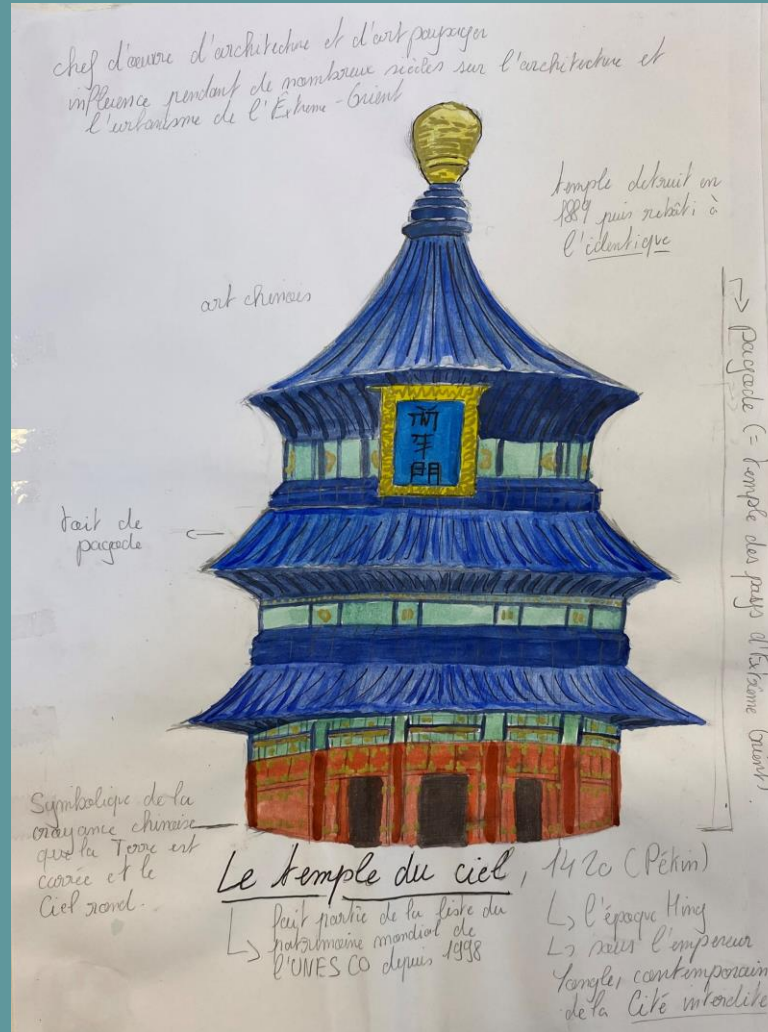 chef d'œuvre d'architecture et d'art paysager
influence pendant de nombreux siècles sur l'architecture et
l'urbanisme de l'Extrême-Orient
temple detruit en
1889 puis rebâti à
l'identique
art chinois
toit de
pagode
pagode (= temple des pays d'Extrême Orient)
Symbolique de la
croyance chinoise
que la Terre est
carrée et le
Ciel rond.
Le temple du ciel, 1420 (Pékin)
fait partie de la liste du
patrimoine mondial de
l'UNESCO depuis 1998
l'époque Ming
sous l'empereur
Yongle, contemporain
de la Cité interdite